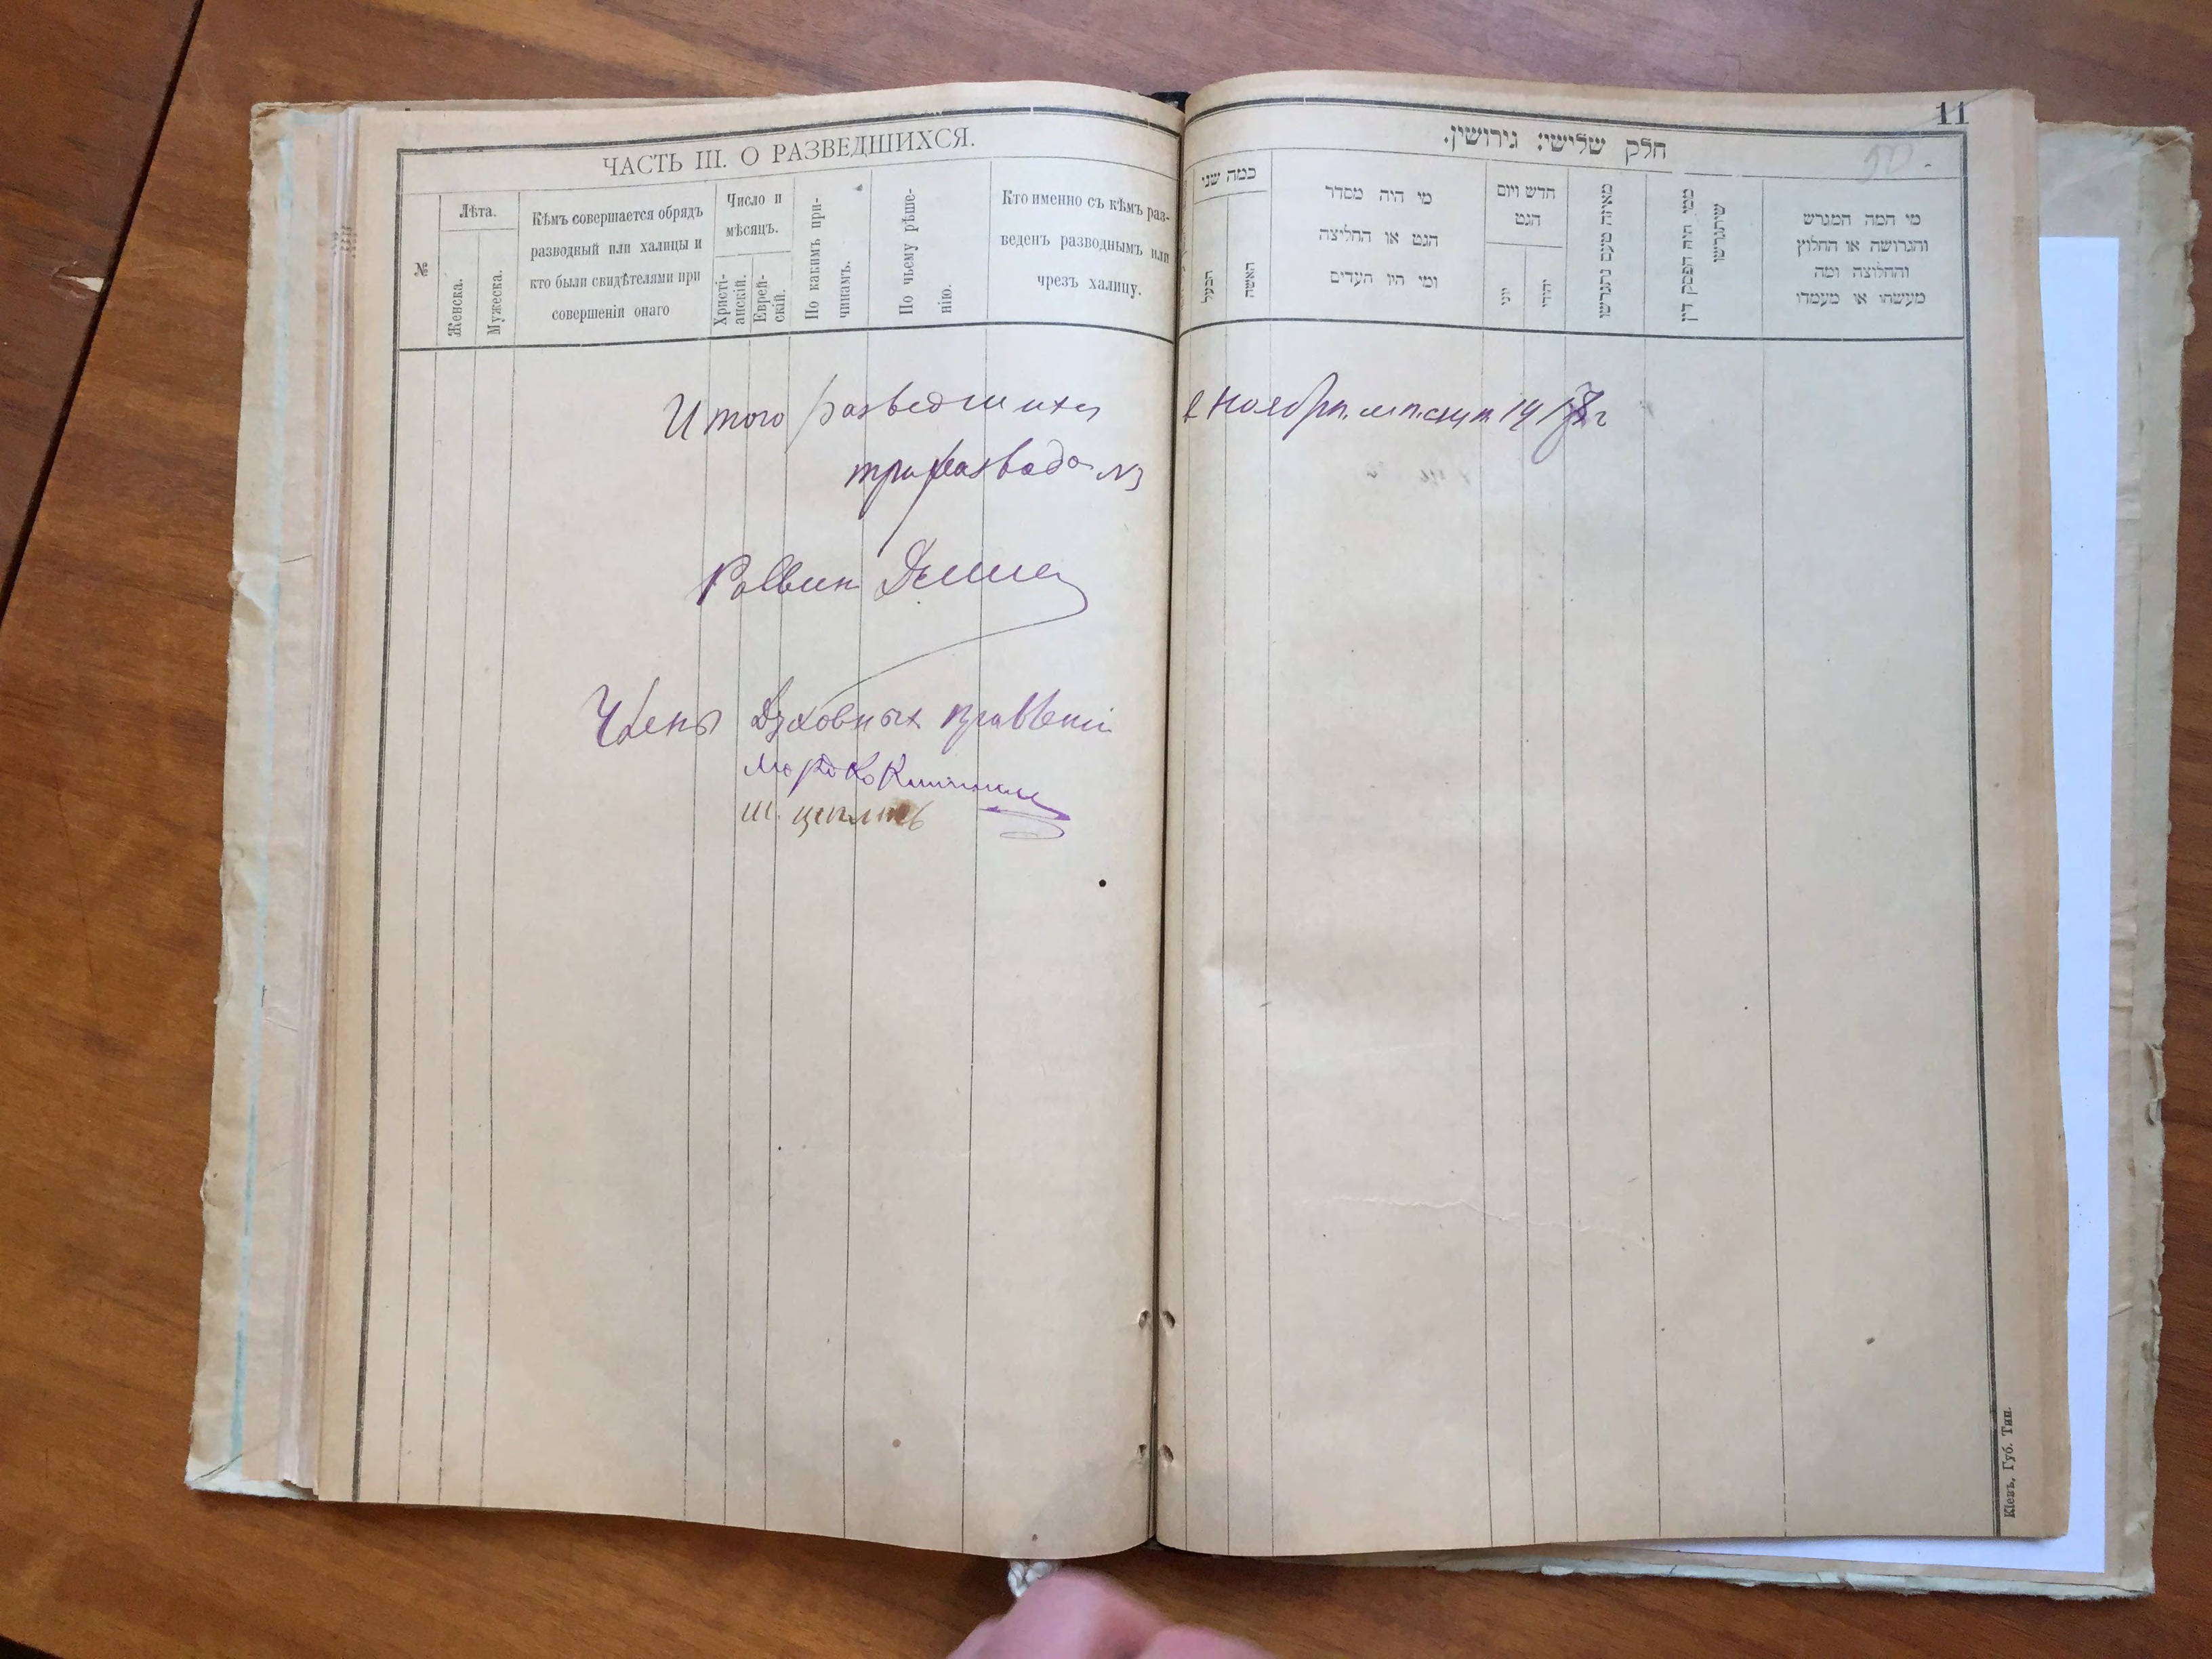 ЧАСТЬ III. О РАЗВЕДШИХСЯ.
№
Лѣта.
Женска.
Мужеска.
Кѣмъ совершается обрядъ
разводный или халицы и
кто были свидѣтелями при
совершеніи онаго
Число и
мѣсяцъ.
Христі-
анскій.
Еврей-
скій.
По какимъ при-
чинамъ.
По чьему рѣше-
нію.
Кто именно съ кѣмъ раз-
веденъ разводнымъ или
чрезъ халицу.
Итого разведшихся
три развода №3
Раввин
Члены Духовных правленій
11
50
חלק שלישי: גירושין.
כמה שני
הבעל
האשה
מי היה מסדר
הגט או החליצה
ומי היו העדים
חדש ויום
הגט
יוני
יהודי
מאיזה טעם נתגרשו
ממי היה הפסק דין
שיתגרשו
מי המה המגרש
והגרושה או החלוץ
והחלוצה ומה
מעשהו או מעמדו
ноября
Кіевъ, Губ. Тип.